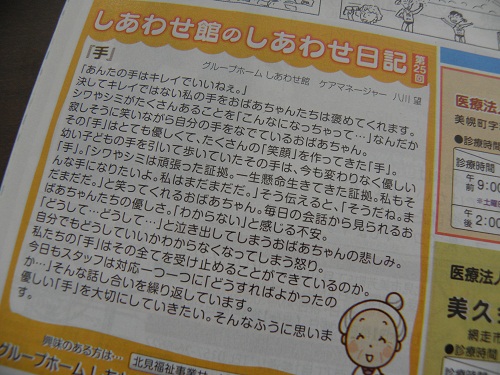 しあわせ館のしあわせ日記
第25回
グループホーム しあわせ館 ケアマネージャー 八川 望
『手』
「あんたの手はキレイでいいねぇ。」
決してキレイではない私の手をおばあちゃんたちは褒めてくれます。
シワやシミがたくさんあることを「こんなになっちゃって…」なんだか
寂しそうに笑いながら自分の手をなでているおばあちゃん。
その「手」はとても優しくて、たくさんの「笑顔」を作ってきた「手」。
幼い子どもの手を引いて歩いていたその手は、今も変わりなく優しい
「手」。「シワやシミは頑張った証拠。一生懸命生きてきた証拠。私もそ
んな手になりたいよ。私はまだまだだ。」そう伝えると、「そうだね。ま
だまだだ。」と笑ってくれるおばあちゃん。毎日の会話から見られるお
ばあちゃんたちの優しさ。「わからない」と感じる不安。
「どうして…どうして…」と泣き出してしまうおばあちゃんの悲しみ。
自分でもどうしていいかわからなくなってしまう怒り。
私たちの「手」はその全てを受け止めることができているのか。
今日もスタッフは対応一つ一つに「どうすればよかったの
か…」そんな話し合いを繰り返しています。
優しい「手」を大切にしていきたい。そんなふうに思いま
す。
興味のある方は…
北見福祉事業
グループホーム しあわ
医療法
美幌町字
●診療時間
診療時間
午前
9:0
※土曜
午後
2:00
医療法人
美久
網走市
●診療時間
診療時間